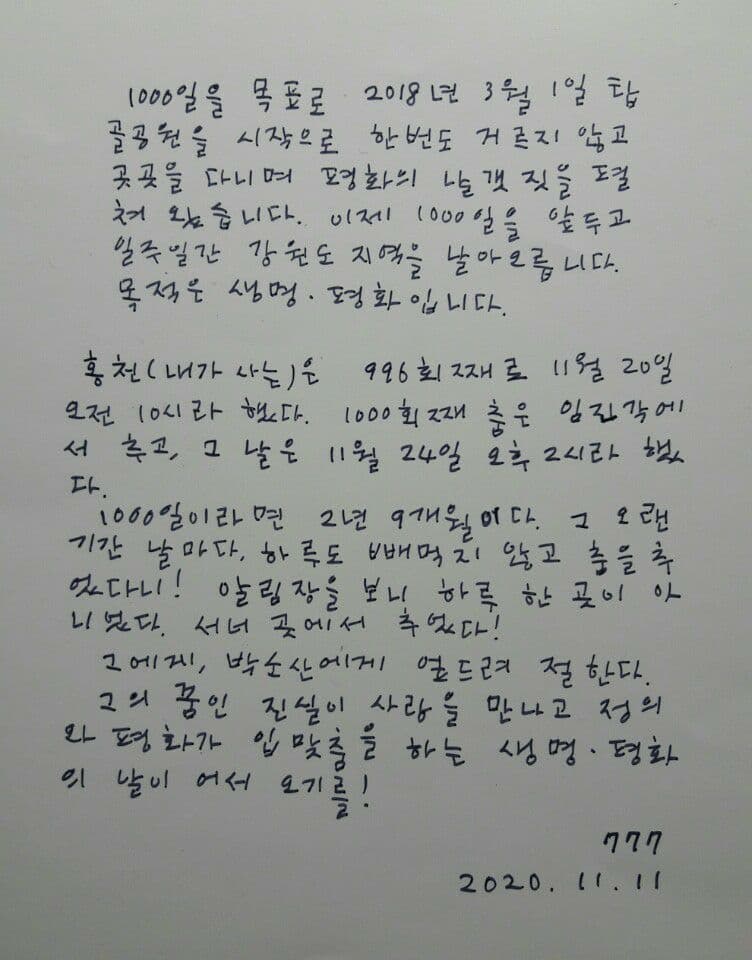 1000일을 목표로 2018년 3월 1일 탑
골공원을 시작으로 한번도 거르지 않고
곳곳을 다니며 평화의 날갯짓을 펼
쳐 왔습니다. 이제 1000일을 앞두고
일주일간 강원도 지역을 날아오릅니다.
목적은 생명·평화입니다.
홍천(내가 사는)은 996회째로 11월 20일
오전 10시라 했다. 1000회째 춤은 임진각에
서 추고, 그 날은 11월 24일 오후 2시라 했
다.
1000일이라면 2년 9개월이다. 그 오랜
기간 날마다, 하루도 빼먹지 않고 춤을 추
었다니! 알림장을 보니 하루 한 곳이 아
니었다. 서너 곳에서 추었다!
그에게, 박소산에게 엎드려 절한다.
그의 꿈인 진실이 사랑을 만나고 정의
와 평화가 입맞춤을 하는 생명·평화
의 날이 어서 오기를!
777
2020. 11. 11